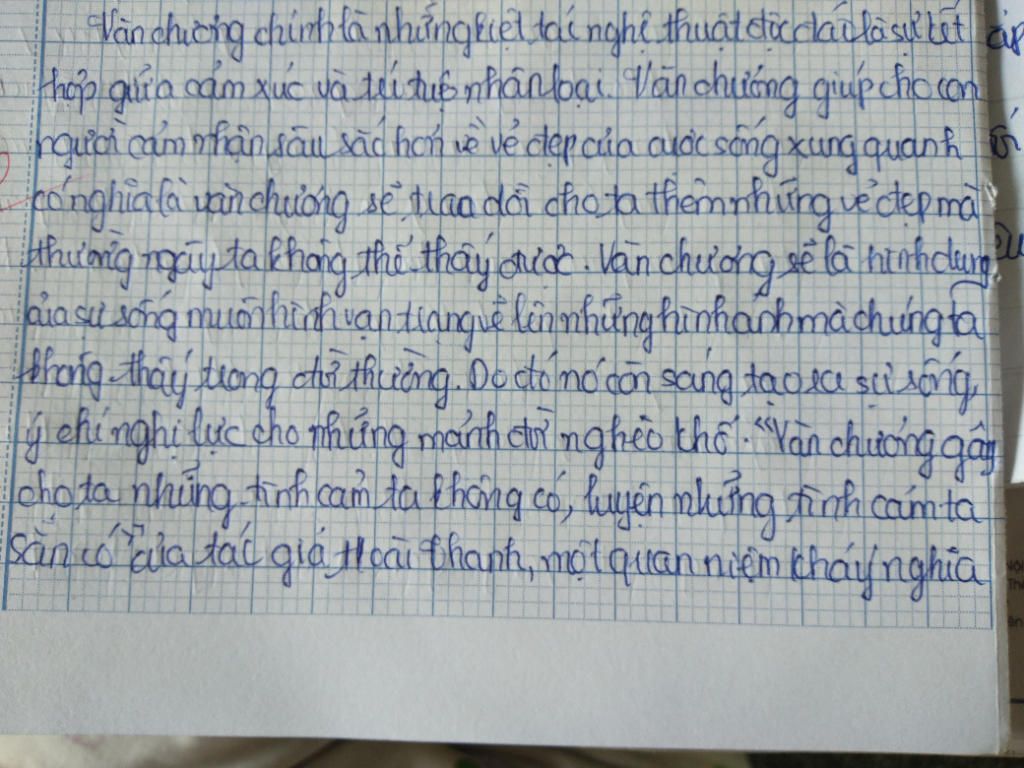 Văn chương chính là những kiệt tác nghệ thuật độc đáo là sự kết
hợp giữa cảm xúc và trí tuệ nhân loại. Văn chương giúp cho con
người cảm nhận sâu sắc hơn về vẻ đẹp của cuộc sống xung quanh
có nghĩa là văn chương sẽ trao dồi cho ta thêm những vẻ đẹp mà
thường ngày ta không thể thấy được. Văn chương sẽ là hình dung
của sự sống muôn hình vạn trạng vẽ lên những hình ảnh mà chúng ta
không thấy trong đời thường. Do đó nó còn sáng tạo ra sự sống,
ý chí nghị lực cho những mảnh đời nghèo khổ. "Văn chương gây
cho ta những tình cảm ta không có, luyện những tình cảm ta
sẵn có" của tác giả Hoài Thanh, một quan niệm khá ý nghĩa